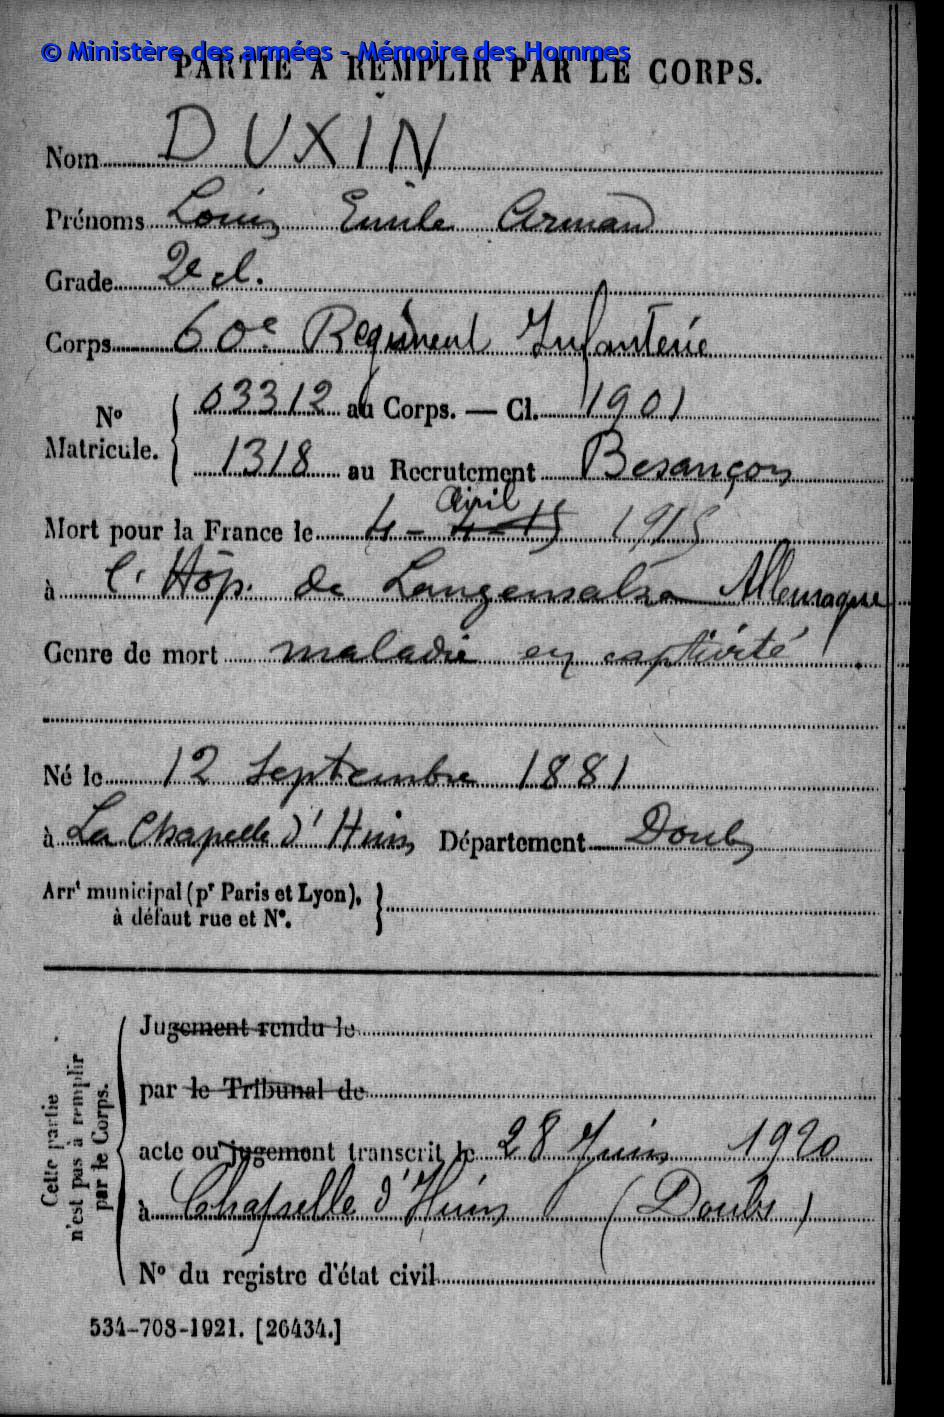 © Ministère des armées - Mémoire des Hommes
PARTIE A REMPLIR PAR LE CORPS.
Nom DUXIN
Prénoms Louis Emile Armand
Grade 2e cl.
Corps 60e Régiment Infanterie
No Matricule. 03312 au Corps. — Cl. 1901
1318 au Recrutement Besançon
Avril
Mort pour la France le 4 - 4-15 1915
à l'Hôp. de Langensalza Allemagne
Genre de mort maladie en captivité
Né le 12 Septembre 1881
à La Chapelle d'Huin Département Doubs
Arrt municipal (pr Paris et Lyon), à défaut rue et No.
Cette partie n'est pas à remplir par le Corps.
Jugement rendu le
par le Tribunal de
acte ou jugement transcrit le 28 Juin 1920
à Chapelle d'Huin (Doubs)
No du registre d'état civil
534-708-1921. [26434.]